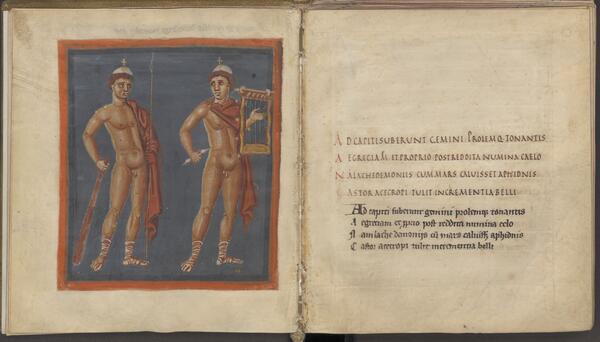 AD CAPITI SUBERUNT GEMINI PROLEMQ TONANTIS
AEGREGIAM ET PROPRIO POST REDDITA NUMINA CAELO
NALACHEDEMONIIS CUM MARS CALUISSET APHIDNIS
CASTOR ACECROPI TULIT INCREMENTIA BELLI
Ad capiti suberunt gemini prolemq; tonantis
A egreiam et proprio post reddita numina celo
N am lache demoniis cū mars caluiss; aphidnis
C astor acecropi tulit incrementia belli